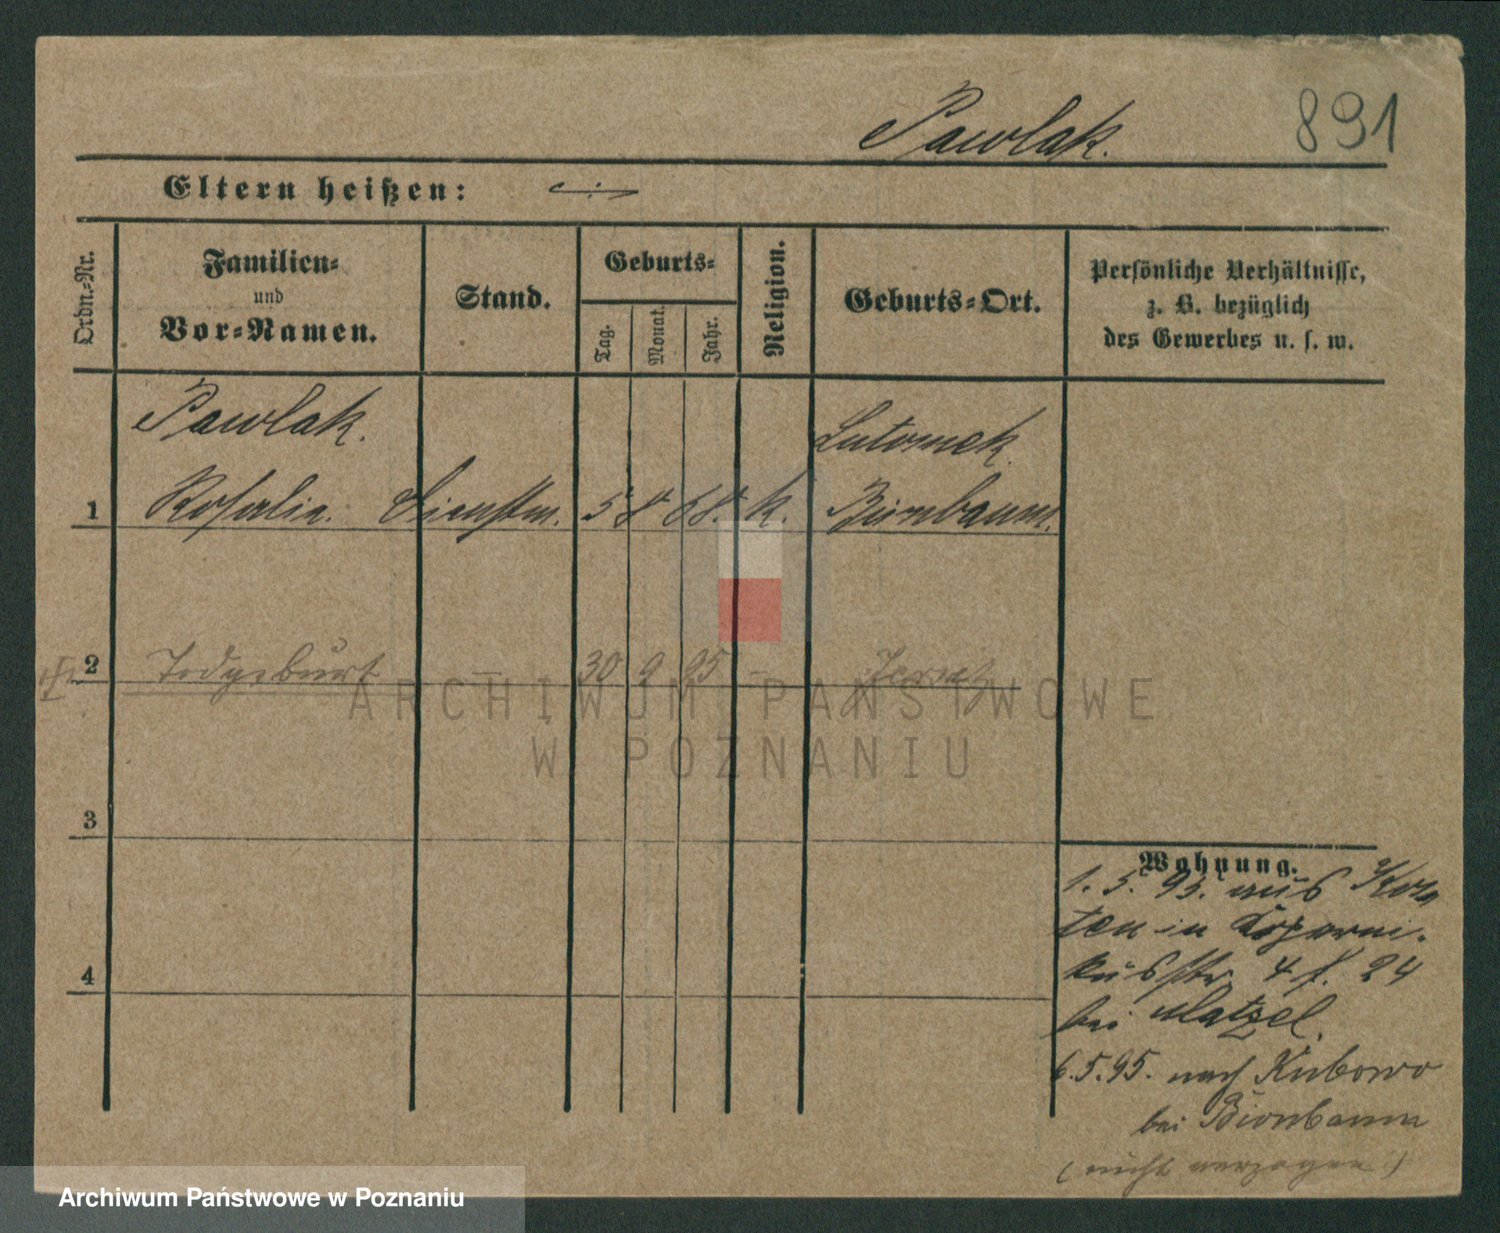 Pawlak.
891
Eltern heißen:
Ordn.-Nr.
Familien-
und
Vor-Namen.
Stand.
Geburts-
Tag.
Monat.
Jahr.
Religion.
Geburts-Ort.
Persönliche Verhältnisse,
z. B. bezüglich
des Gewerbes u. s. w.
Pawlak.
Lutomek
1 Rosalie. Dienstm. 5 8 68. k. Birnbaum.
2 Todgeburt — 30 9 95 - Jersitz
3
4
Wohnung.
1. 5. 95. aus
ten in Koperni-
kusstr. 4 f. 24
bei Matzel.
6.5.95. nach Kubowo
bei Birnbaum
(nicht verzogen!)
ARCHIWUM PAŃSTWOWE
W POZNANIU
Archiwum Państwowe w Poznaniu